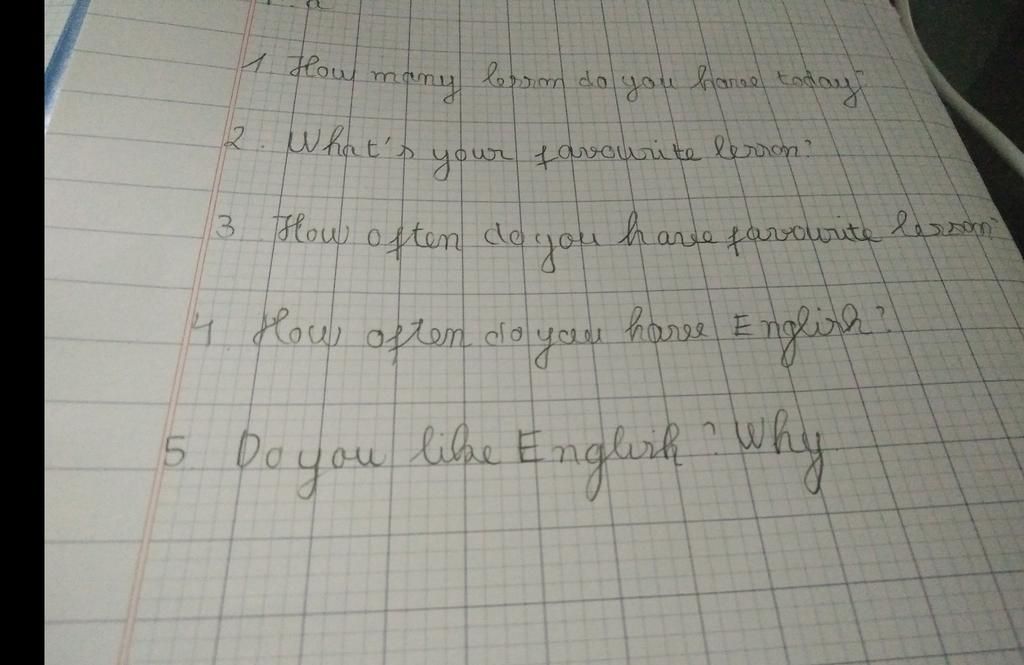 1. How many lesson do you have today?
2. What's your favourite lesson?
3 How often do you have favourite lesson?
4. How often do you have English?
5. Do you like English? Why